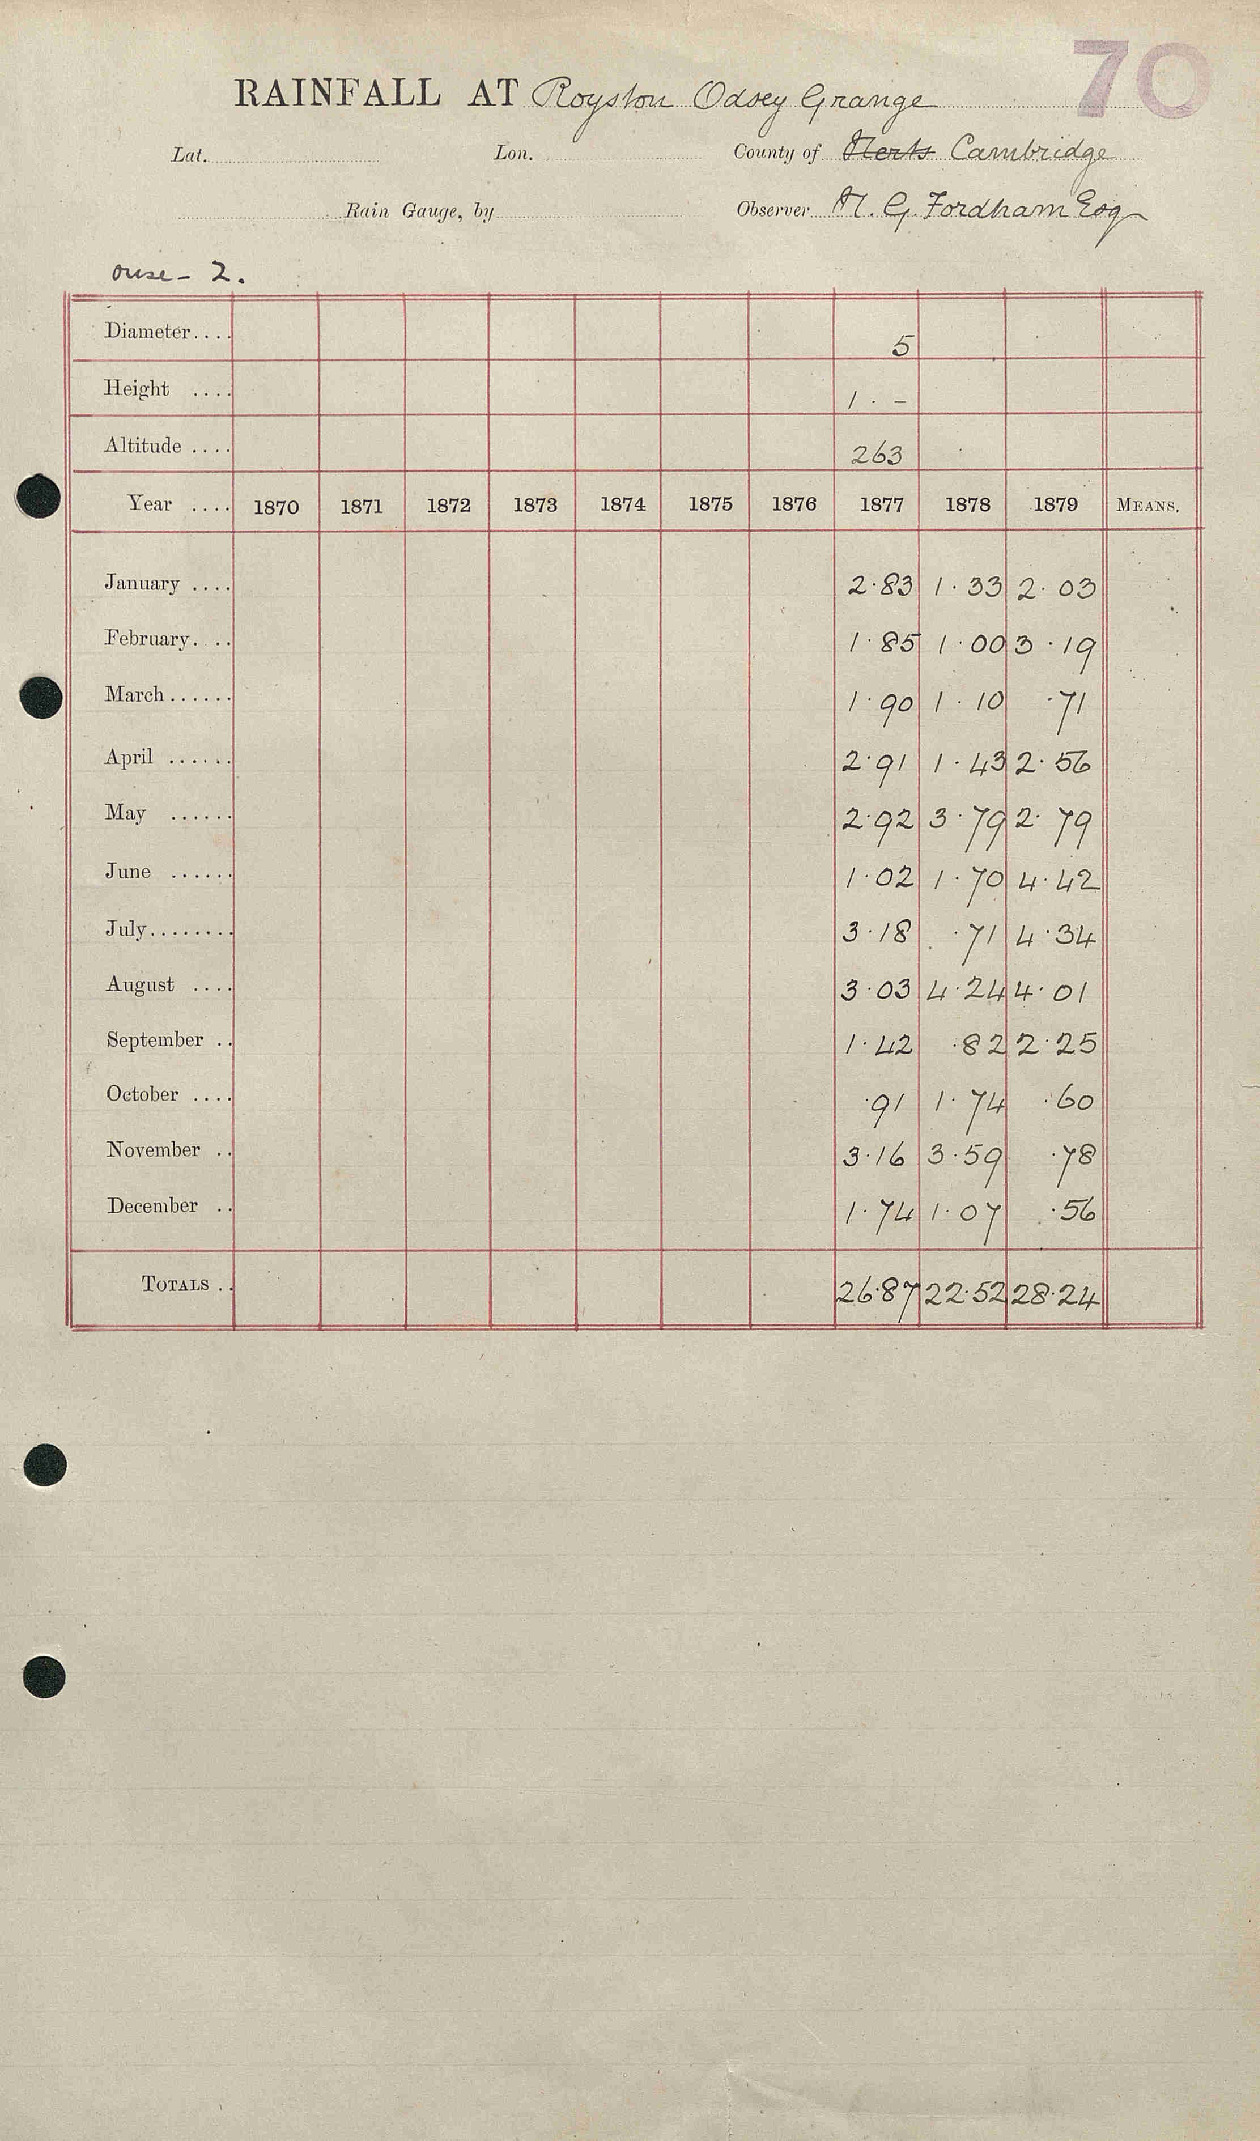 70
RAINFALL AT Royston Odsey Grange
Lat. Lon. County of Herts Cambridge
Rain Gauge, by Observer H. G. Fordham Esq
ouse - 2.
Diameter.... 5
Height .... 1 · -
Altitude .... 263
Year .... 1870 1871 1872 1873 1874 1875 1876 1877 1878 1879 MEANS.
January .... 2·83 1·33 2·03
February.... 1·85 1·00 3·19
March...... 1·90 1·10 ·71
April ...... 2·91 1·43 2·56
May ...... 2·92 3·79 2·79
June ...... 1·02 1·70 4·42
July........ 3·18 ·71 4·34
August .... 3·03 4·24 4·01
September .. 1·42 ·82 2·25
October .... ·91 1·74 ·60
November .. 3·16 3·59 ·78
December .. 1·74 1·07 ·56
TOTALS .. 26·87 22·52 28·24